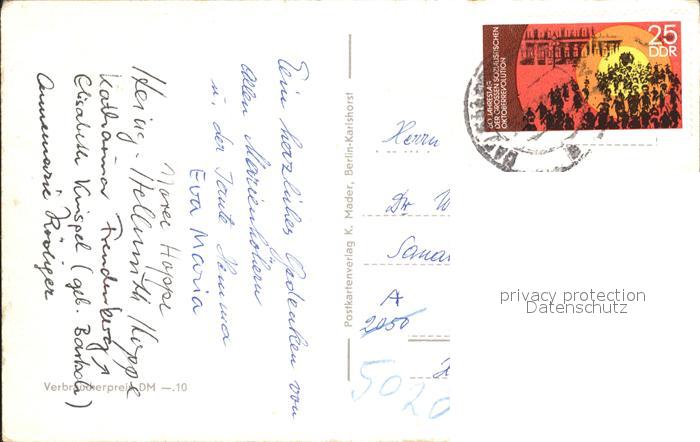 Ein herzliches Gedenken von
allen Marienhöhern
u. der Tante Hemma
Eva Maria
Hoppe
Heinz-Hellmuth Hoppe
Katharina Freudenberg
Elisabeth Krispel (geb. Bartsch)
Annemarie Rödiger
Verbraucherpreis DM —.10
Postkartenverlag K. Mader, Berlin-Karlshorst
25
DDR
60. JAHRESTAG
DER GROSSEN SOZIALISTISCHEN
OKTOBERREVOLUTION
Herrn
Dr. W
Sana
A
2050
5020
privacy protection
Datenschutz